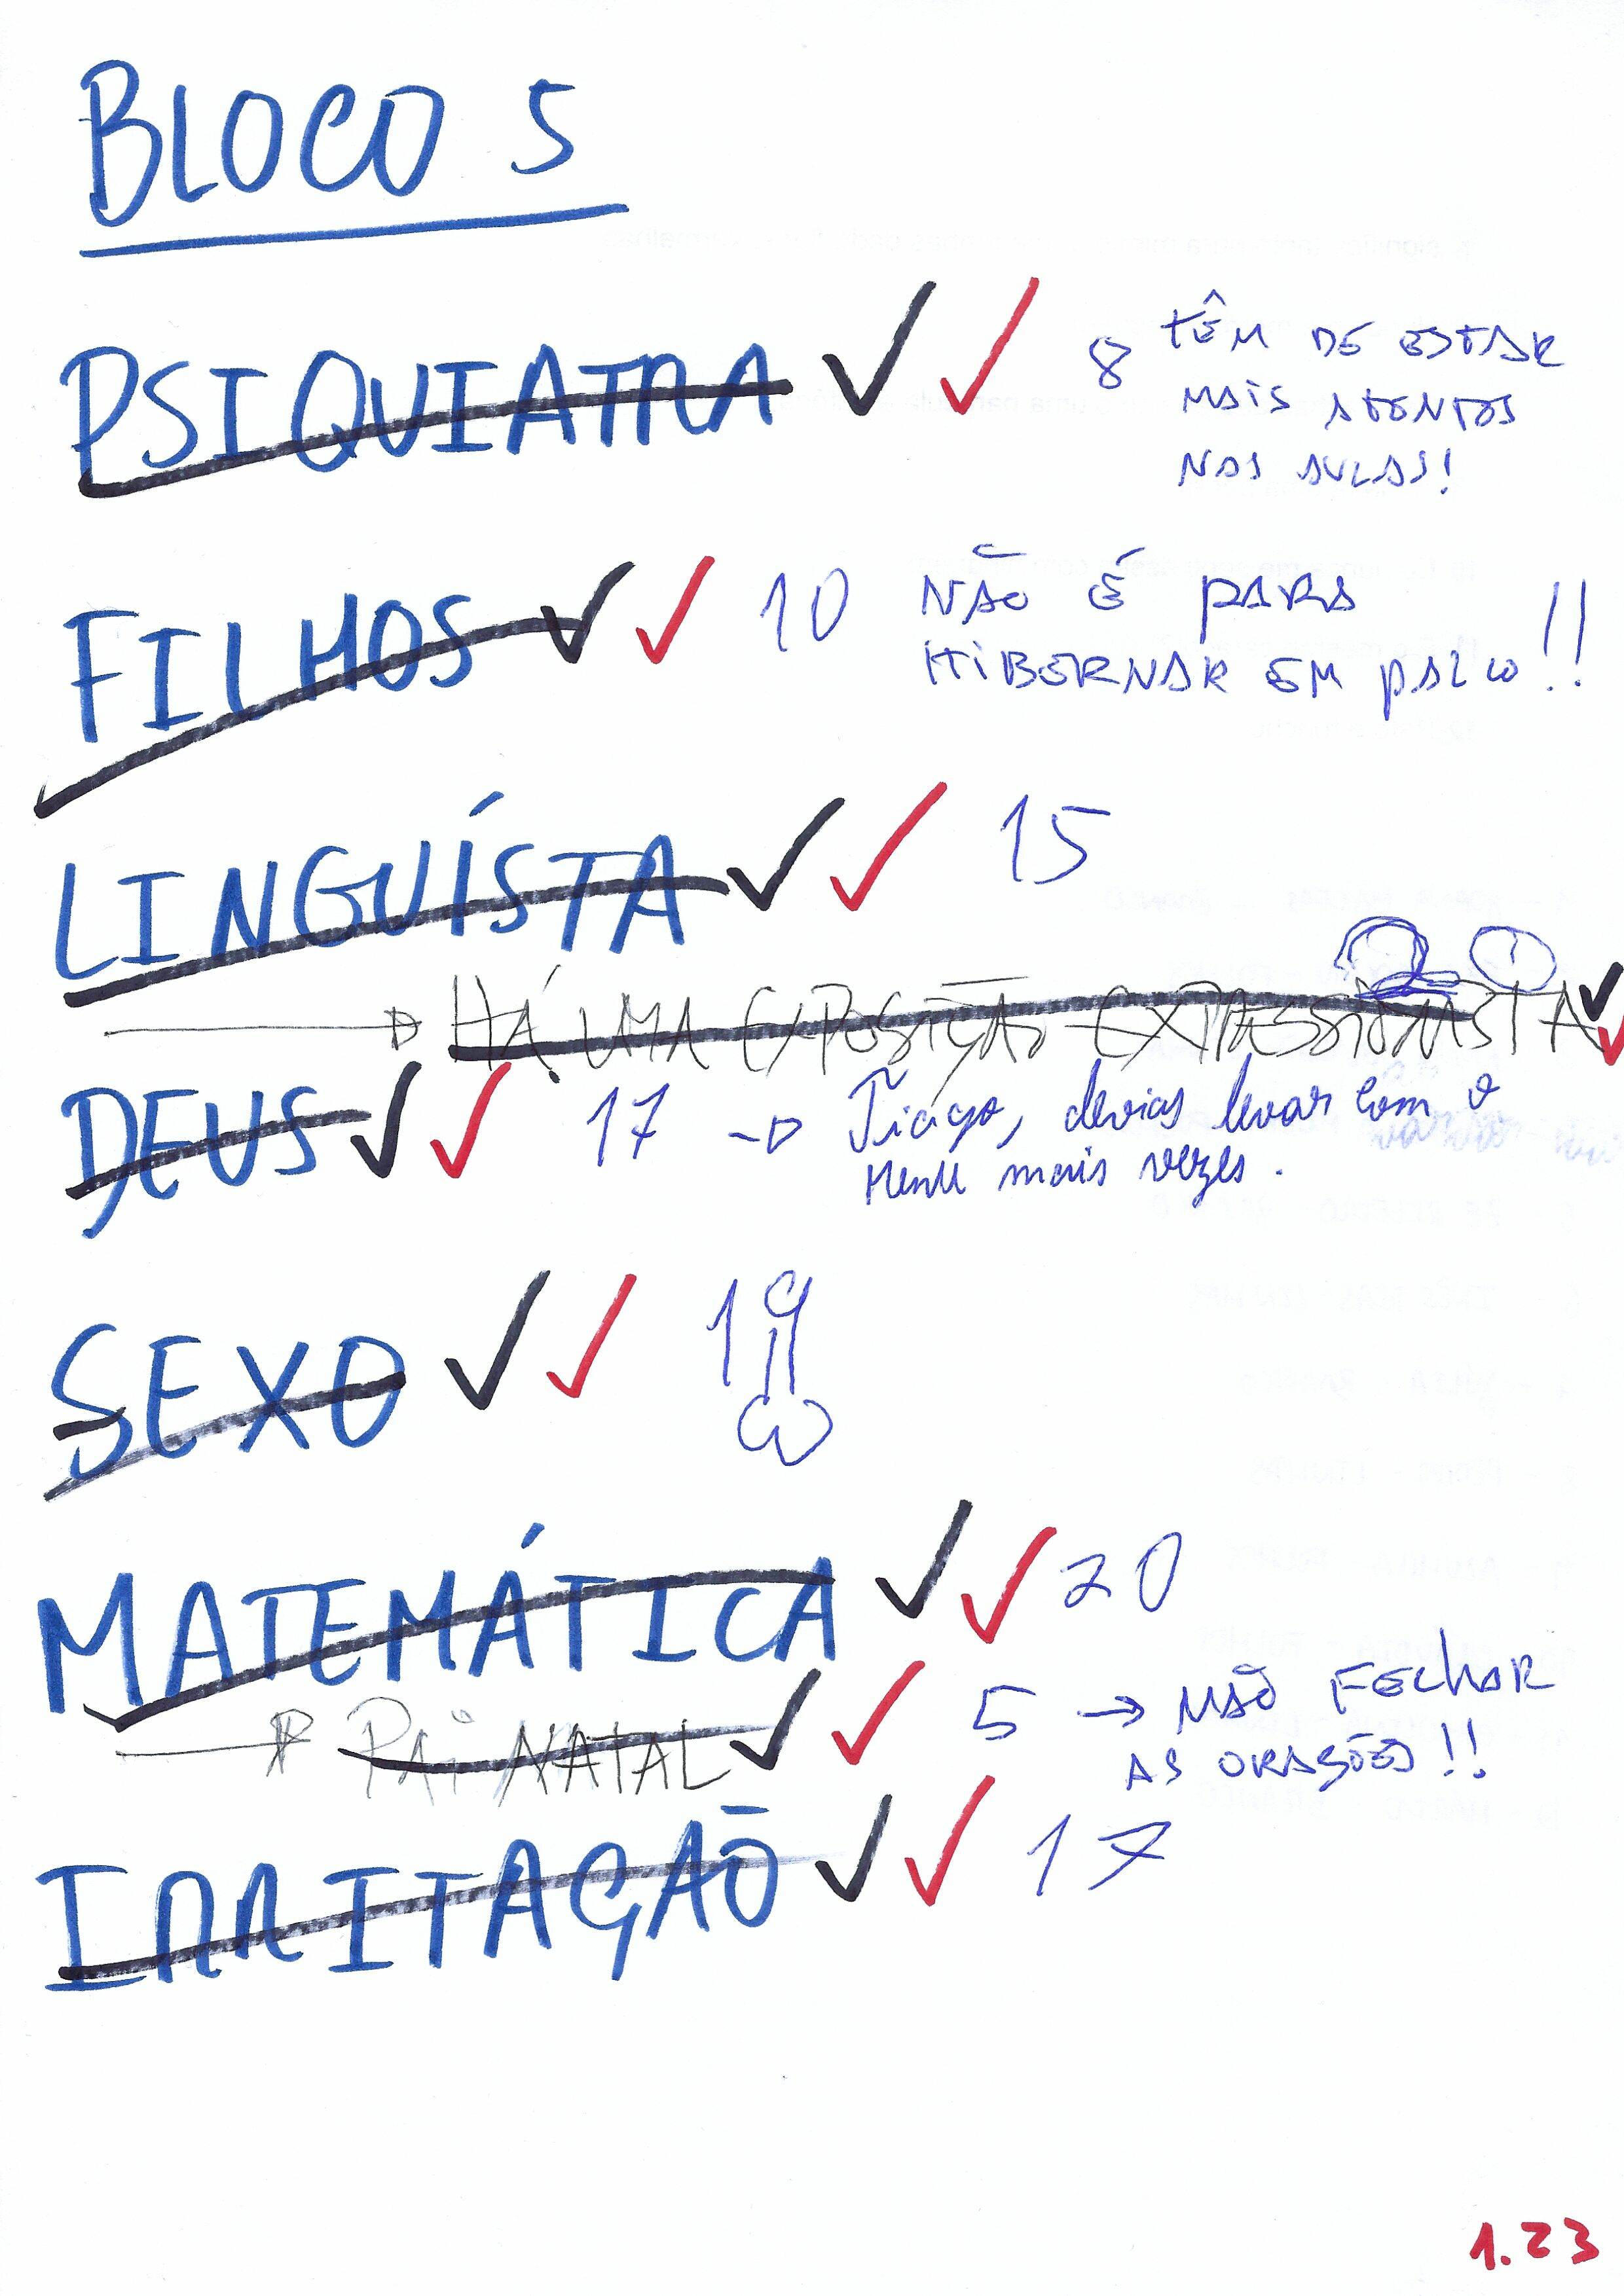 BLOCO 5
PSIQUIATRA ✓ ✓ 8 TÊM DE ESTAR
MAIS ATENTOS
NAS AULAS!
FILHOS ✓ ✓ 10 NÃO É PARA
HIBERNAR EM PALCO!!
LINGUÍSTA ✓ ✓ 15
20
HÁ UMA EXPOSIÇÃO EXPRESSIONISTA ✓ ✓
DEUS ✓ ✓ 17 → Tiago, devias levar com o
menu mais vezes.
SEXO ✓ ✓ 19
MATEMÁTICA ✓ ✓ 20
→ PAI NATAL ✓ ✓ 5 → NÃO FECHAR
AS ORAÇÕES!!
IRRITAÇÃO ✓ ✓ 17
1.23